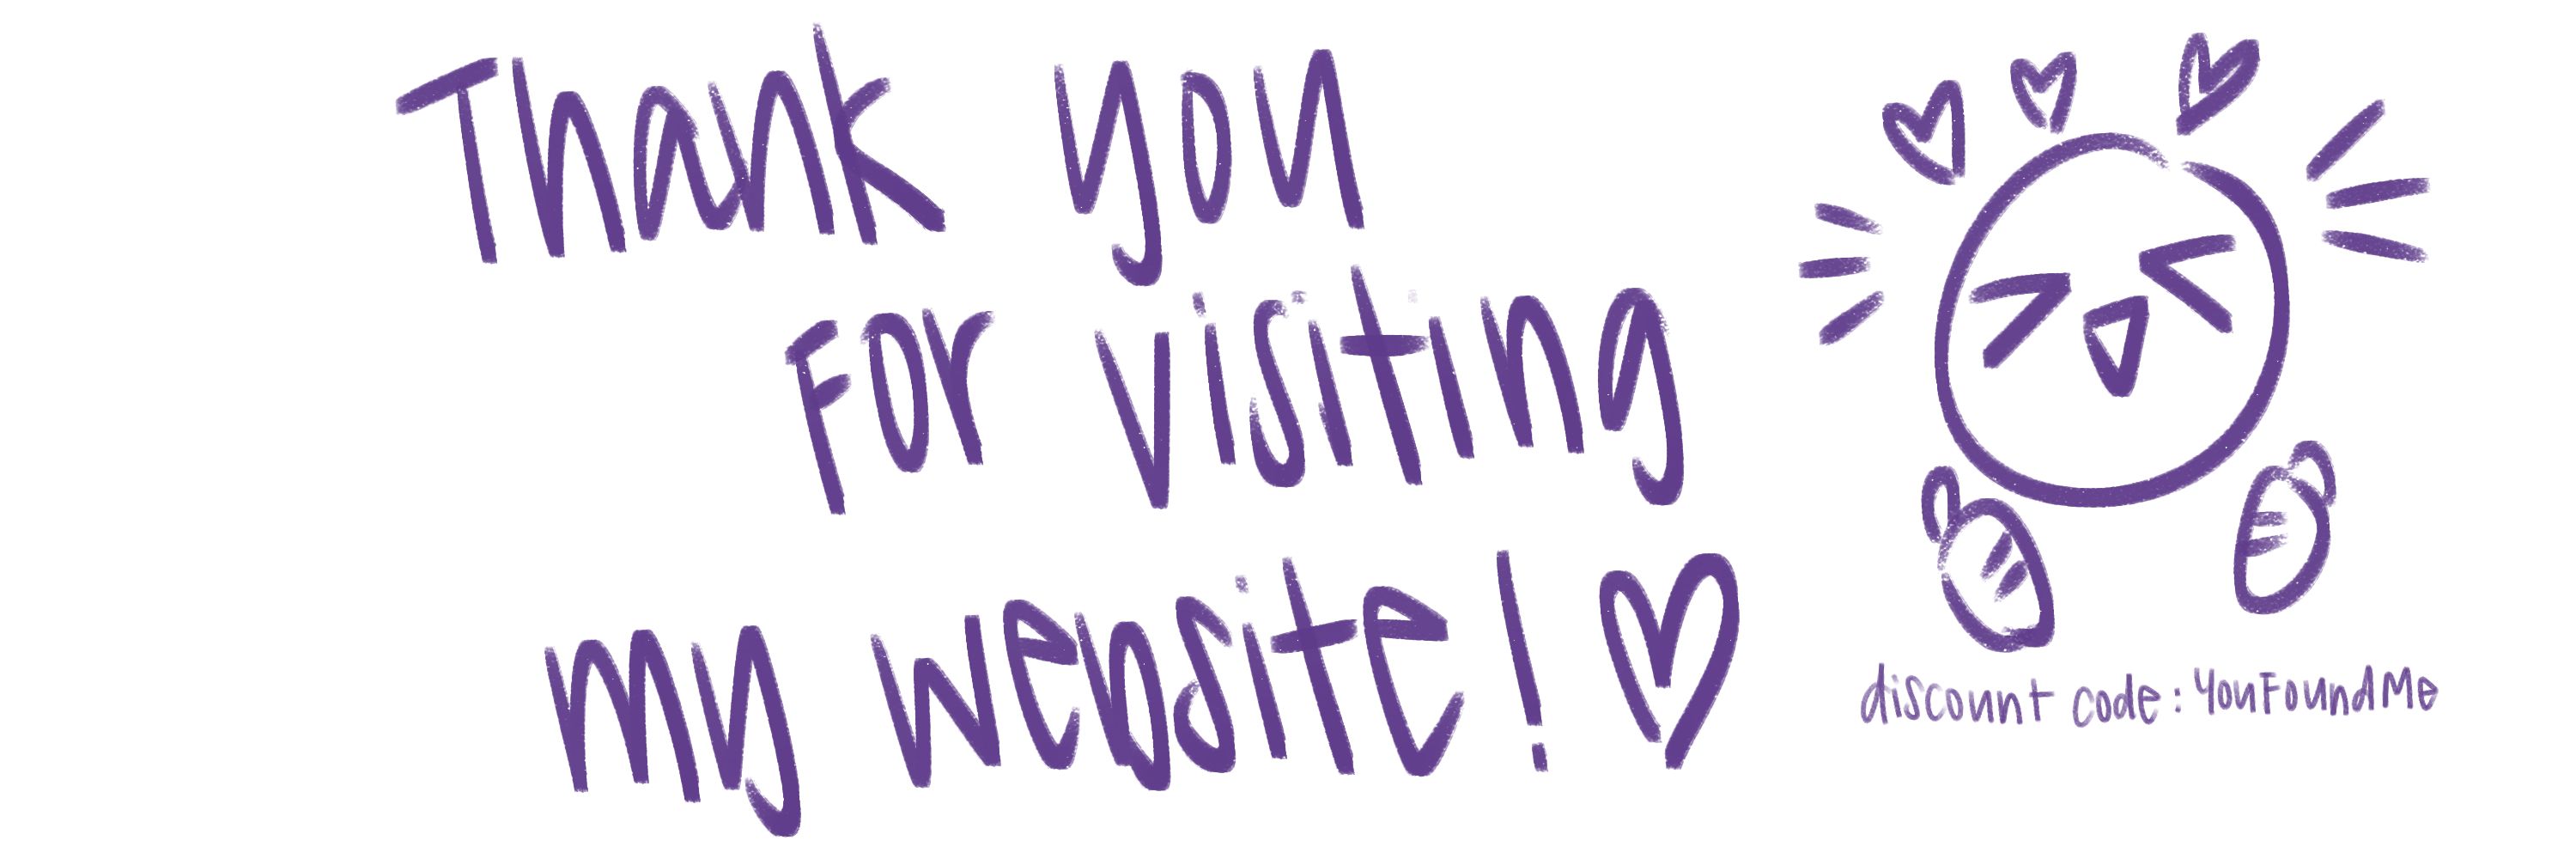 Thank you
For visiting
my website!
discount code: YouFoundMe